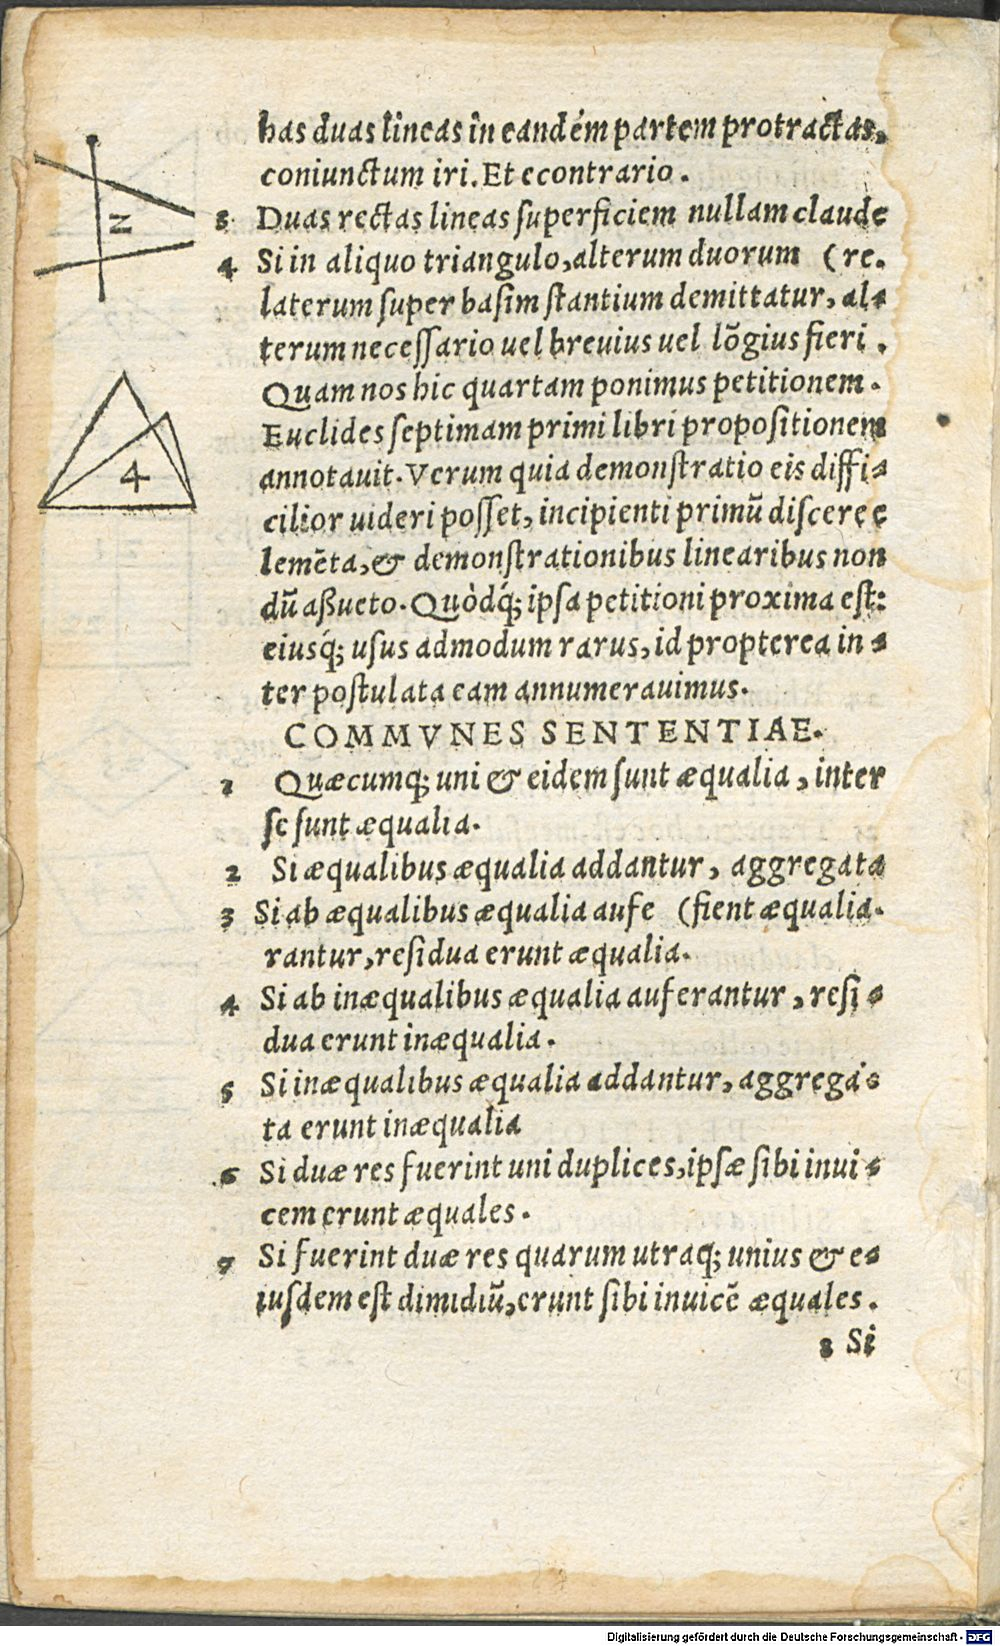 has duas lineas in eandém partem protractas,
coniunctum iri. Et econtrario.
3 Duas rectas lineas superficiem nullam claude
4 Si in aliquo triangulo, alterum duorum (re.
laterum super basim stantium demittatur, al-
terum necessario uel breuius uel lõgius fieri.
Quam nos hic quartam ponimus petitionem.
Euclides septimam primi libri propositionem
annotauit. Verum quia demonstratio eis diffi-
cilior uideri posset, incipienti primũ discere e
lemẽta, & demonstrationibus linearibus non
dũ aßueto. Quòdq́; ipsa petitioni proxima est:
eiusq́; usus admodum rarus, id propterea in-
ter postulata eam annumerauimus.
COMMVNES SENTENTIAE.
1 Quæcumq; uni & eidem sunt æqualia, inter
se sunt æqualia.
2 Si æqualibus æqualia addantur, aggregata
3 Si ab æqualibus æqualia aufe (fient æqualia.
rantur, residua erunt æqualia.
4 Si ab inæqualibus æqualia auferantur, resi-
dua erunt inæqualia.
5 Si inæqualibus æqualia addantur, aggrega-
ta erunt inæqualia
6 Si duæ res fuerint uni duplices, ipsæ sibi inui-
cem erunt æquales.
7 Si fuerint duæ res quarum utraq; unius & e-
iusdem est dimidiũ, erunt sibi inuicẽ æquales.
8 Si
2
4
Digitalisierung gefördert durch die Deutsche Forschungsgemeinschaft - DFG